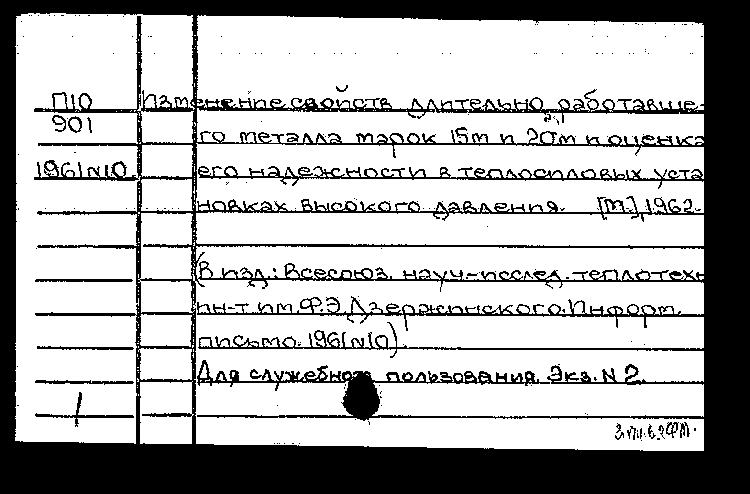 П10 Изменение свойств длительно работавше-
901 го металла марок 15м и 20м и оценка
1961 N10 его надежности в теплосиловых уста
новках высокого давления. [М.], 1962.
(В изд.: Всесоюз. науч-исслед. теплотехн
ин-т им. Ф.Э. Дзержинского. Информ.
письмо. 1961 N10).
Для служебного пользования. Экз. N 2.
1